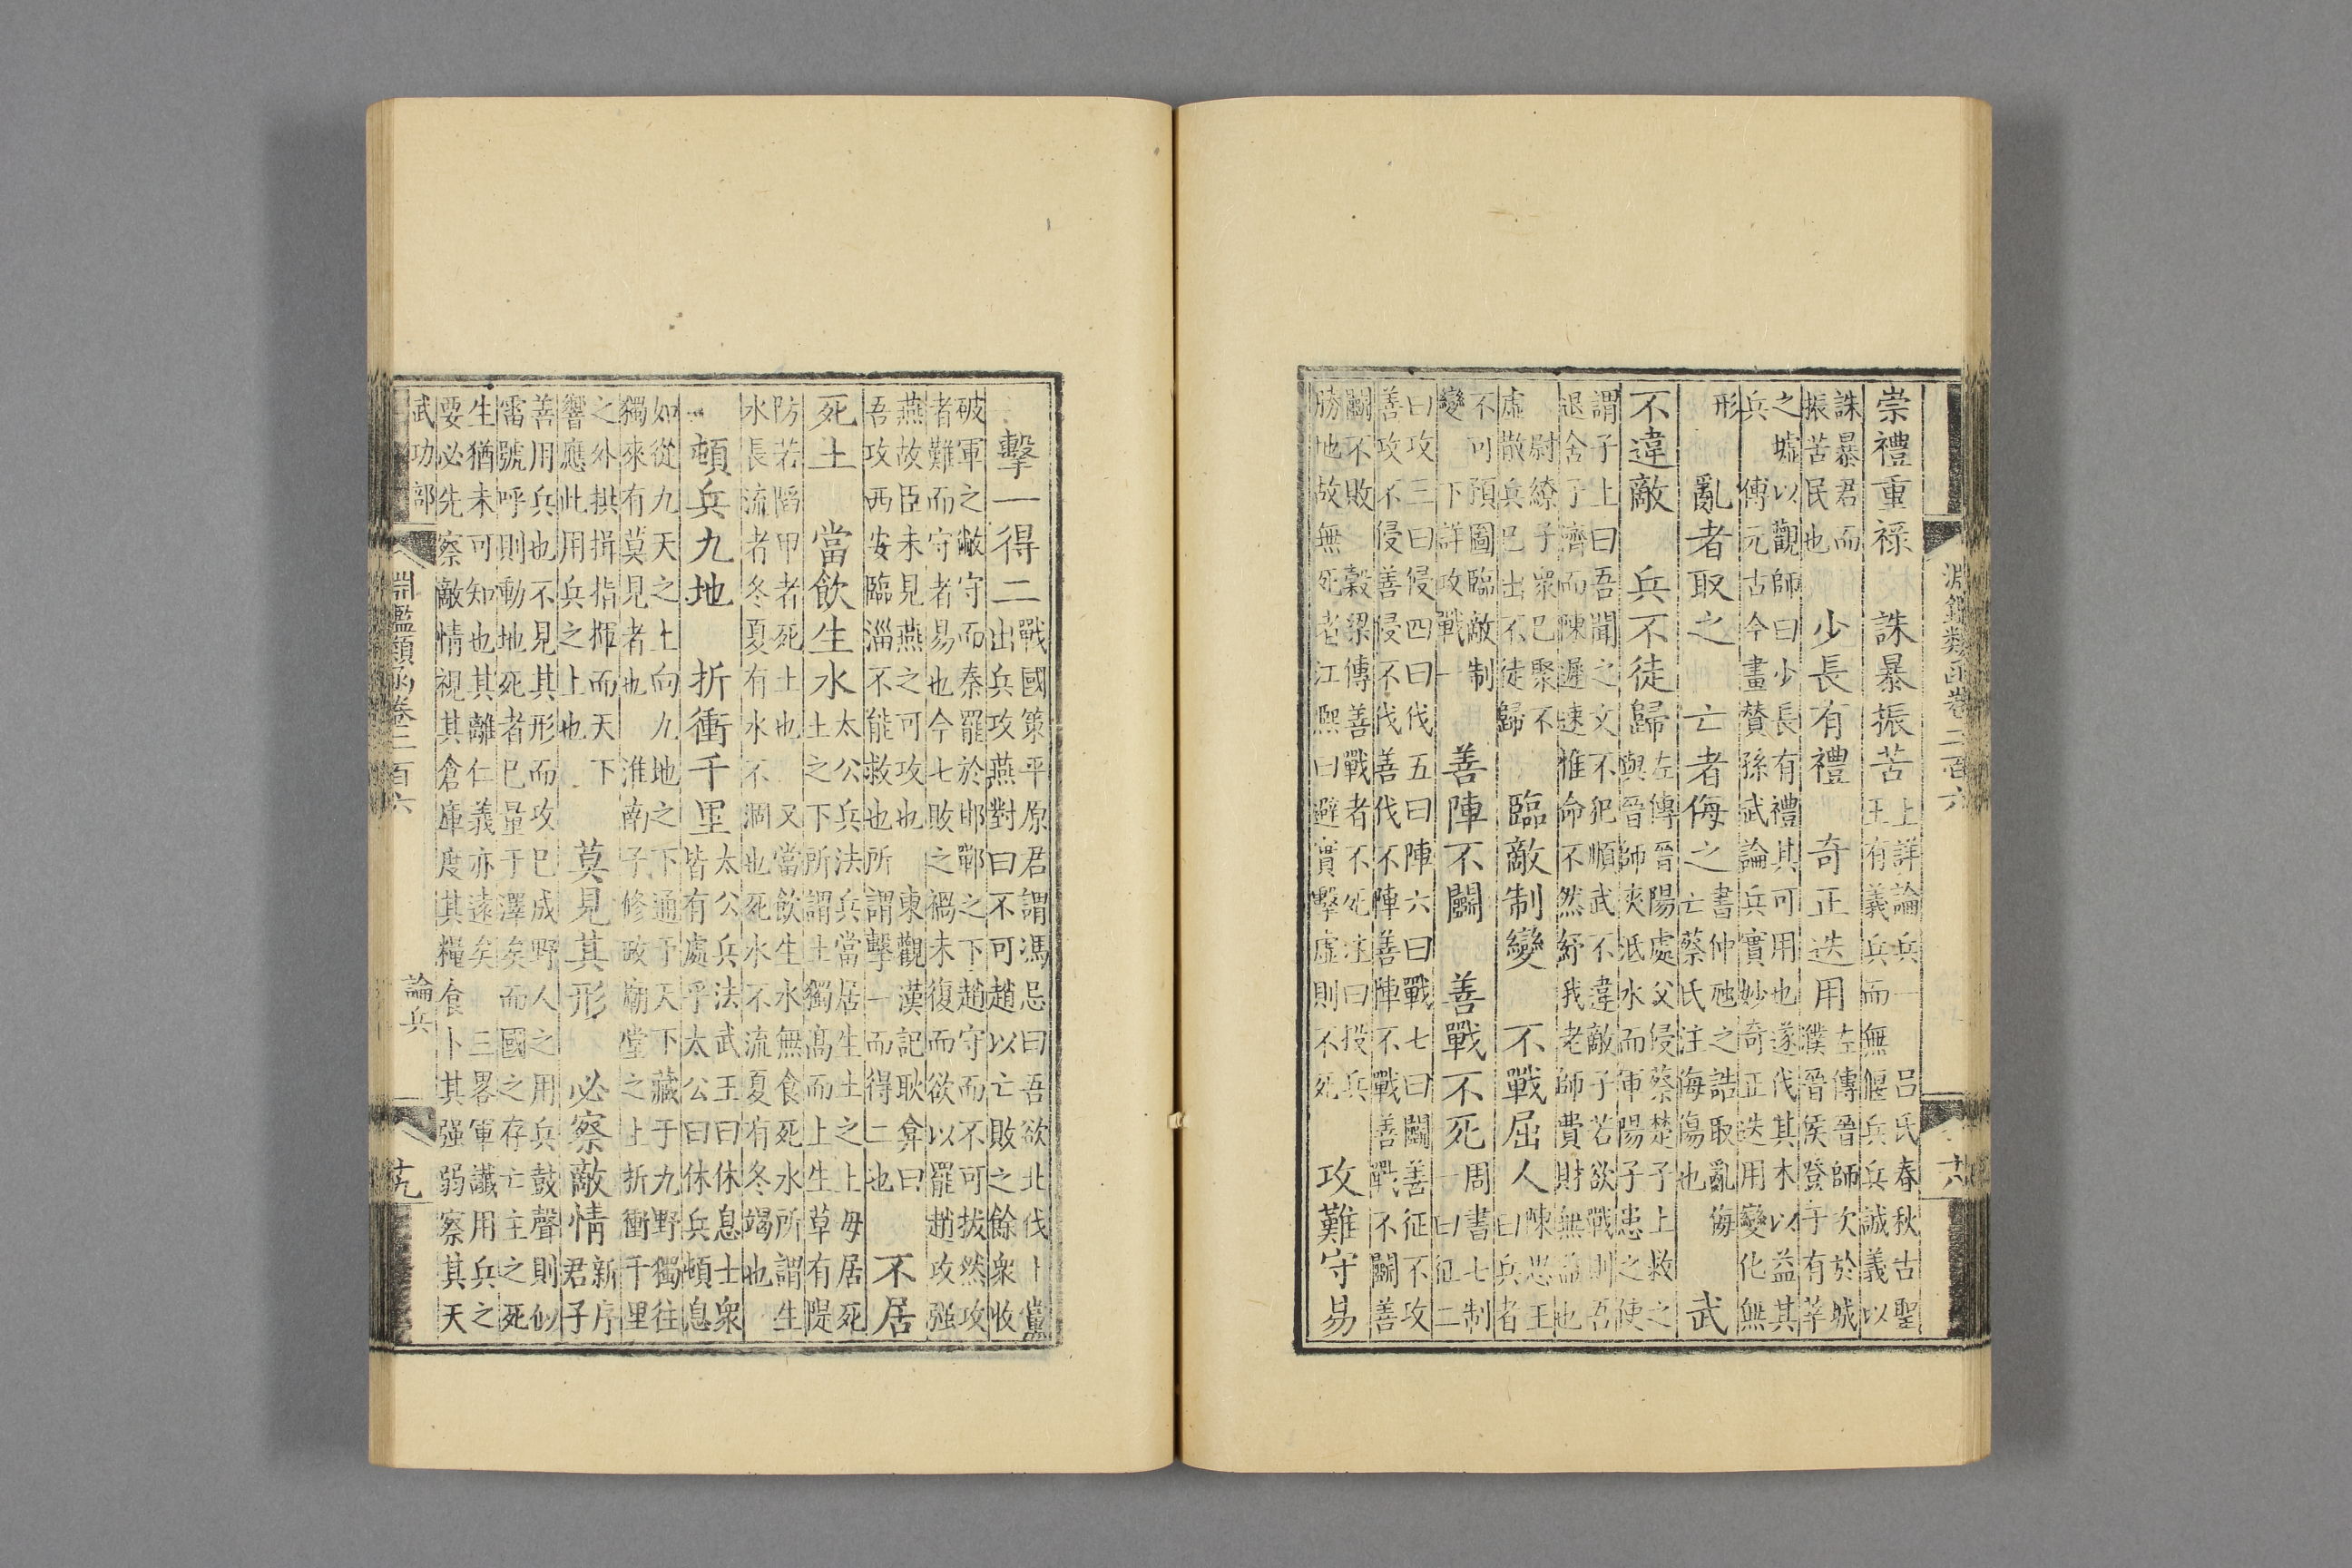 淵鑑類函卷二百六 十八
崇禮重祿 誅暴振苦
上詳論兵一 呂氏春秋古聖
王有義兵而無偃兵兵誠義以
誅暴君而
振苦民也
少長有禮 奇正迭用
左傳晉師次於城
濮晉侯登于有莘
之墟以觀師曰少長有禮其可用也遂伐其木以益其
兵 傳元古今畫贊孫武論兵實妙奇正迭用變化無
形
亂者取之 亡者侮之
書仲虺之誥取亂侮
亡蔡氏注侮傷也
武
不違敵 兵不徒歸
左傳晉陽處父侵蔡楚子上救之
與晉師夾泜水而軍陽子患之使
謂子上曰吾聞之文不犯順武不違敵子若欲戰則吾
退舍子濟而陳遲速惟命不然紓我老師費財無益也
尉繚子衆已聚不
虛散兵已出不徒歸
臨敵制變 不戰屈人
陳思王
曰兵者
不可預圖臨敵制
變 下詳攻戰一
善陣不鬬 善戰不死
周書七制
一曰征二
曰攻三曰侵四曰伐五曰陣六曰戰七曰鬬善征不攻
善攻不侵善侵不伐善伐不陣善陣不戰善戰不鬬善
鬬不敗 穀梁傳善戰者不死注曰投兵
勝地故無死者江熙曰避實擊虛則不死
攻難守易
擊一得二
戰國策平原君謂馮忌曰吾欲北伐上黨
出兵攻燕對曰不可趙以亡敗之餘衆收
破軍之敝守而秦罷於邯鄲之下趙守而不可拔然攻
者難而守者易也今七敗之禍未復而欲以罷趙攻强
燕故臣未見燕之可攻也 東觀漢記耿弇曰
吾攻西安臨淄不能救也所謂擊一而得二也
不居
死土 當飲生水
太公兵法兵當居生土之上毋居死
土之下所謂土獨髙而上生草有隄
防若陷甲者死土也 又當飲生水無食死水所謂生
水長流者冬夏有水不涸也死水不流夏有冬竭也
頓兵九地 折衝千里
太公兵法武王曰休息士衆
皆有處乎太公曰休兵頓息
如從九天之上向九地之下通于天下藏于九野獨往
獨來有莫見者也 淮南子修政廟堂之上折衝千里
之外拱揖指揮而天下
響應此用兵之上也
莫見其形 必察敵情
新序
君子
善用兵也不見其形而攻已成野人之用兵鼓聲則似
雷號呼則動地死者已量于澤矣而國之存亡主之死
生猶未可知也其離仁義亦遠矣 三畧軍讖用兵之
要必先察敵情視其倉庫度其糧食卜其强弱察其天
武功部 淵鑑類函卷二百六 論兵 十九